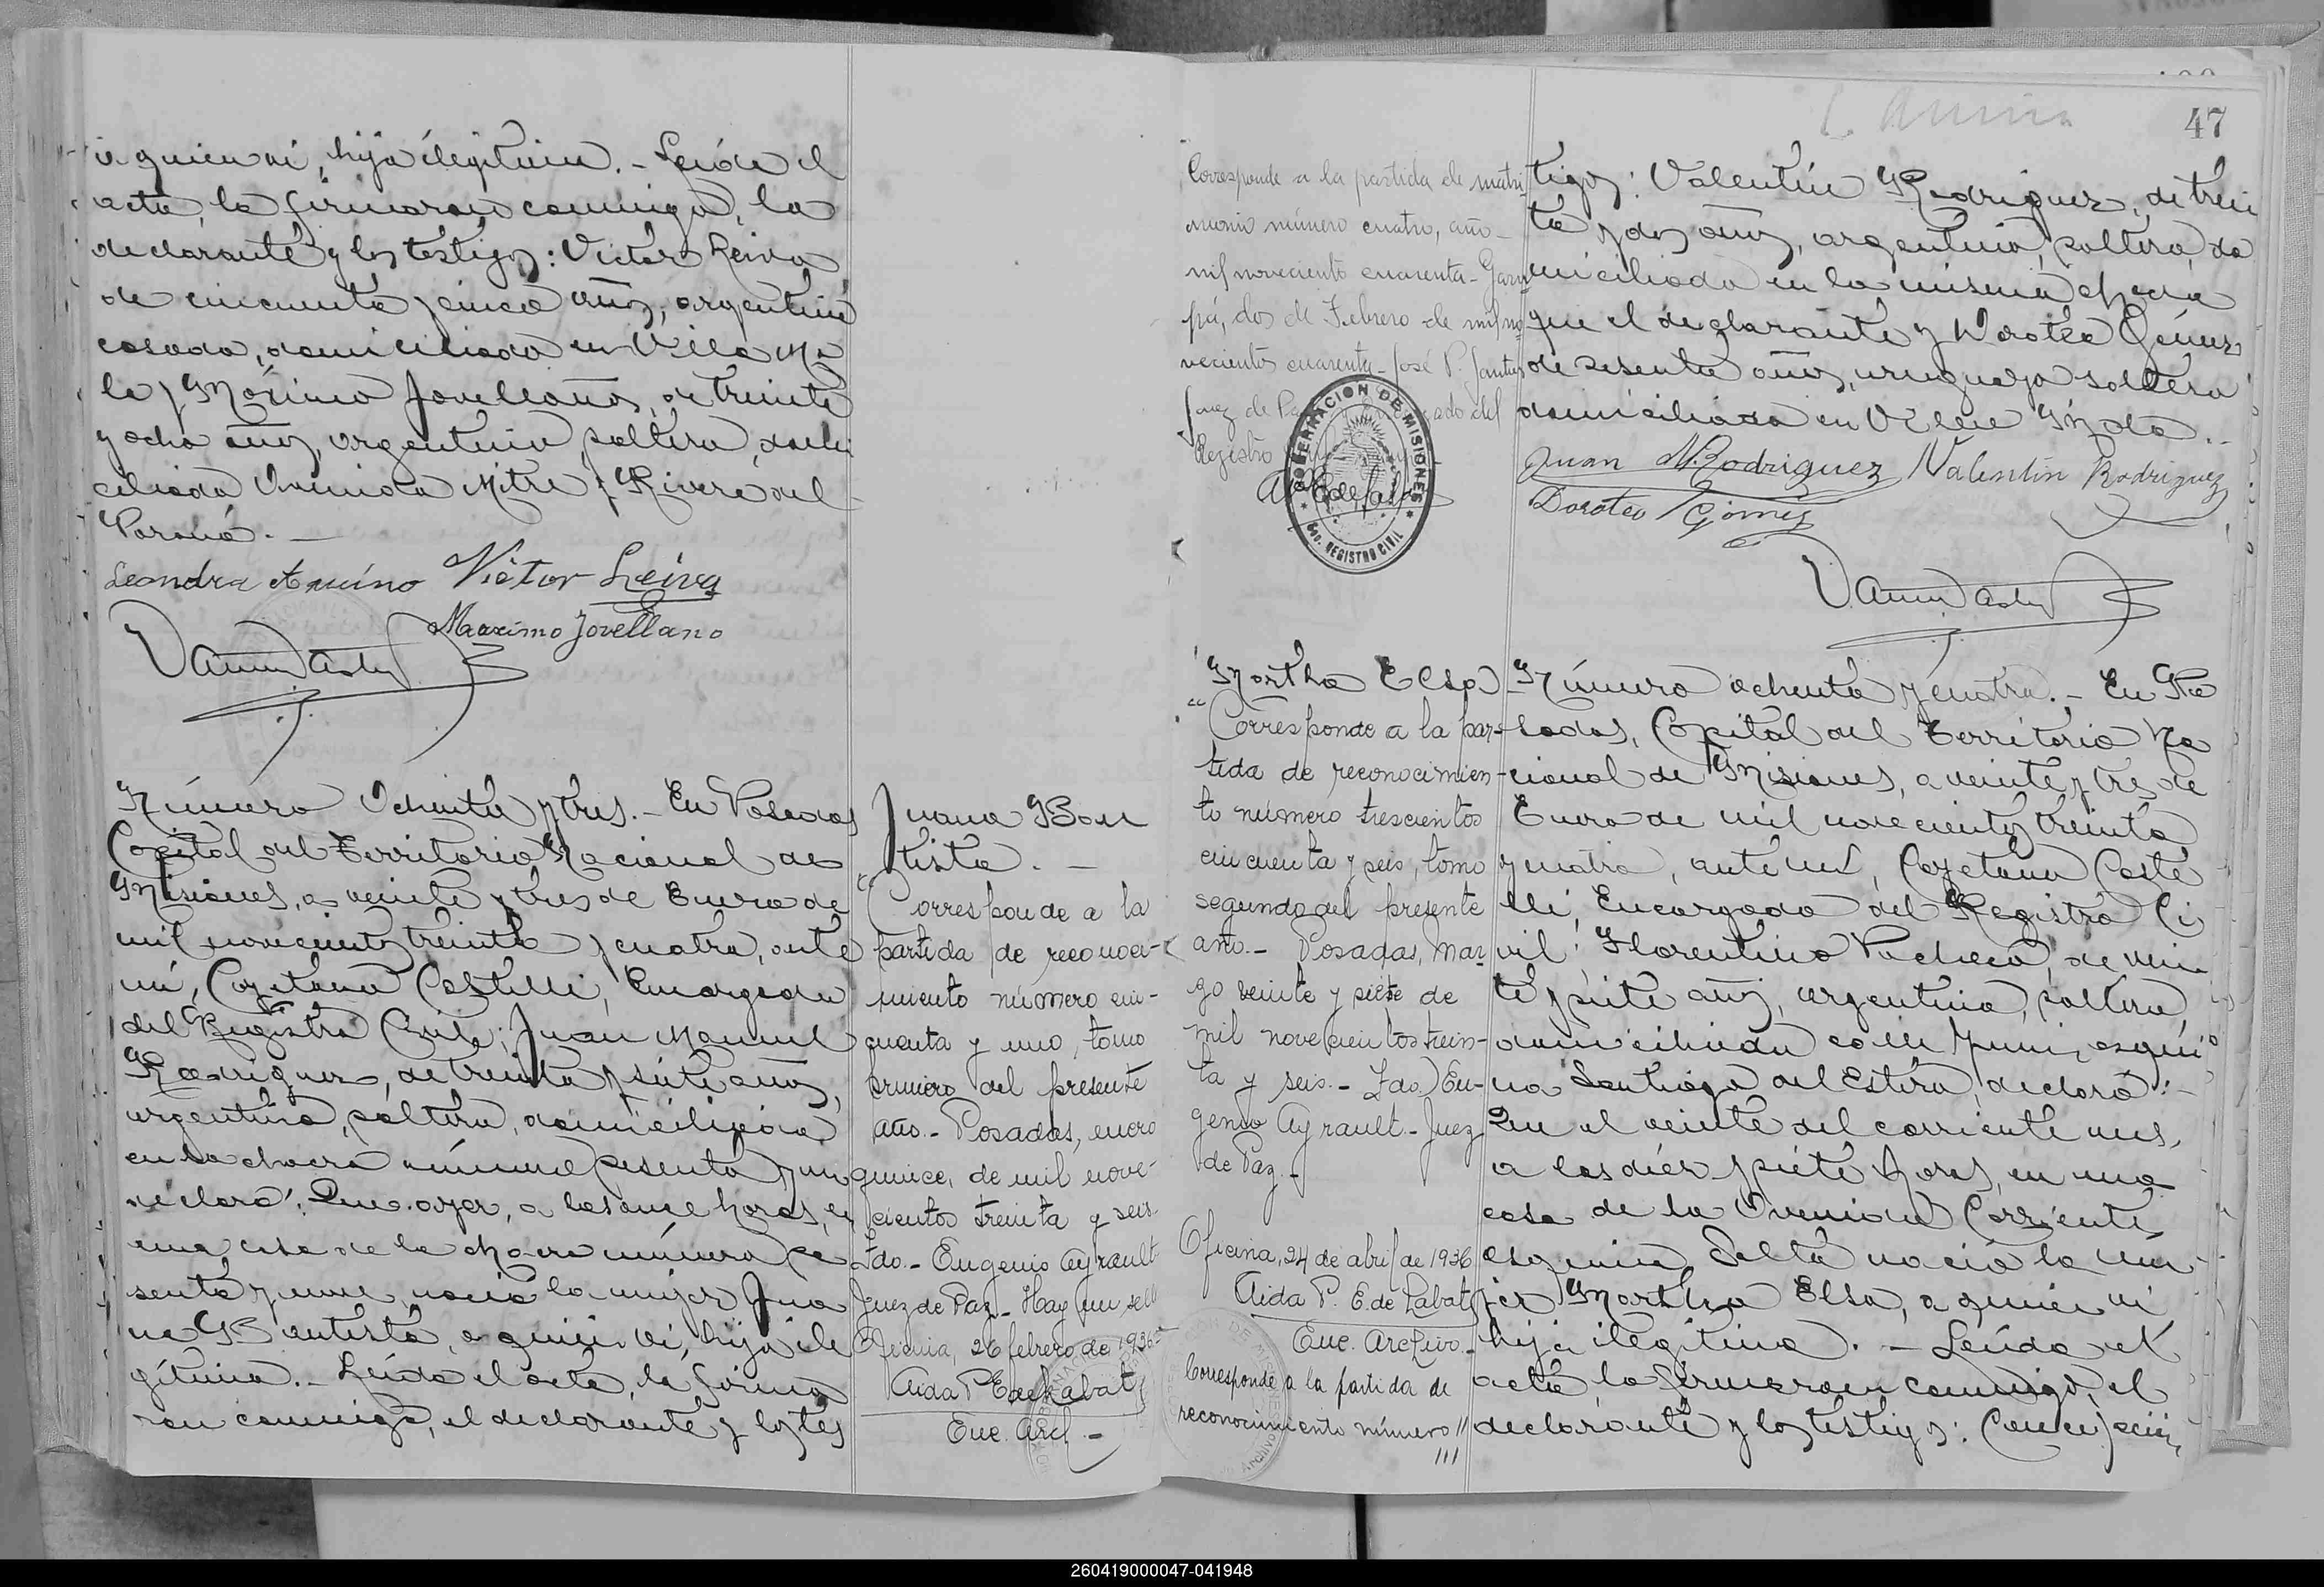 a quien vi, hija ilegítima. - Leída el
acta, la firmaron conmigo, la
declarante y los testigos: Victor Leiva
de cincuenta y cinco años, argentino
casado, domiciliado en Villa Mo
la y Máximo Jovellanos, de treinta
y ocho años, argentino, soltero, domi
ciliado Avenida Mitre y Rivera del
Paraná. -
Leandra Aquino Victor Leiva
Maximo Jovellano
Número Ochenta y tres. - En Posadas
Capital del Territorio Nacional de
Misiones, a veinte y tres de Enero de
mil novecientos treinta y cuatro, ante
mi, Cayetano Castelli, Encargado
del Registro Civil; Juan Manuel
Rodriguez, de treinta y siete años,
argentino, soltero, domiciliado
en la chacra número sesenta y un
declaró: Que ayer, a las once horas, en
una casa de la chacra número se
senta y uno, nació la mujer Jua
na Bautista, a quien vi, hija ile
gítima. - Leída el acta, la firma
ron conmigo, el declarante y los tes
Juana Bau
tista. -
"Corresponde a la
partida de reconoci-
miento número cin-
cuenta y uno, tomo
primero del presente
año. - Posadas, enero
quince, de mil nove-
cientos treinta y seis.
Fdo. - Eugenio Ayrault
Juez de Paz - Hay un sello
Oficina, 26 febrero de 1936
Aida P. E. de Labat
Enc. Arch. -
47
Corresponde a la partida de matri
monio número cuatro, año
mil novecientos cuarenta - Garu
pá, dos de Febrero de mil no
vecientos cuarenta - José P. Santus
Juez de Paz Encargado del
Registro
GOBERNACION DE MISIONES
REGISTRO CIVIL
tigos: Valentín Rodriguez, de trein
ta y dos años, argentino, soltero, do
miciliado en la misma chacra
que el declarante y Doroteo Gómez
de sesenta años, uruguayo soltero
domiciliado en Villa Mola. -
Juan M. Rodriguez Valentín Rodriguez
Doroteo Gómez
Martha Elsa
"Corresponde a la par-
tida de reconocimien-
to número trescientos
cincuenta y seis, tomo
segundo del presente
año. - Posadas, Mar-
zo veinte y siete de
mil novecientos trein-
ta y seis. - Fdo) Eu-
genio Ayrault - Juez
de Paz. -
Oficina, 24 de abril de 1936
Aida P. E. de Labat
Enc. Archivo.
Corresponde a la partida de
reconocimiento número //
///
Número ochenta y cuatro. - En Po
sadas, Capital del Territorio Na
cional de Misiones, a veinte y tres de
Enero de mil novecientos treinta
y cuatro, ante mi, Cayetano Caste
lli, Encargado del Registro Ci
vil; Florentino Pacheco, de vein
te y siete años, argentino, soltero,
domiciliado calle Junin, esqui
na Santiago del Estero, declaró: -
Que el veinte del corriente mes,
a las diez y siete horas, en una
casa de la Avenida Corrientes
esquina Salta nació la mu
jer Martha Elsa, a quien vi
hija ilegítima. - Leída el
acta la firmaron conmigo, el
declarante y los testigos: Concepción,
260419000047-041948